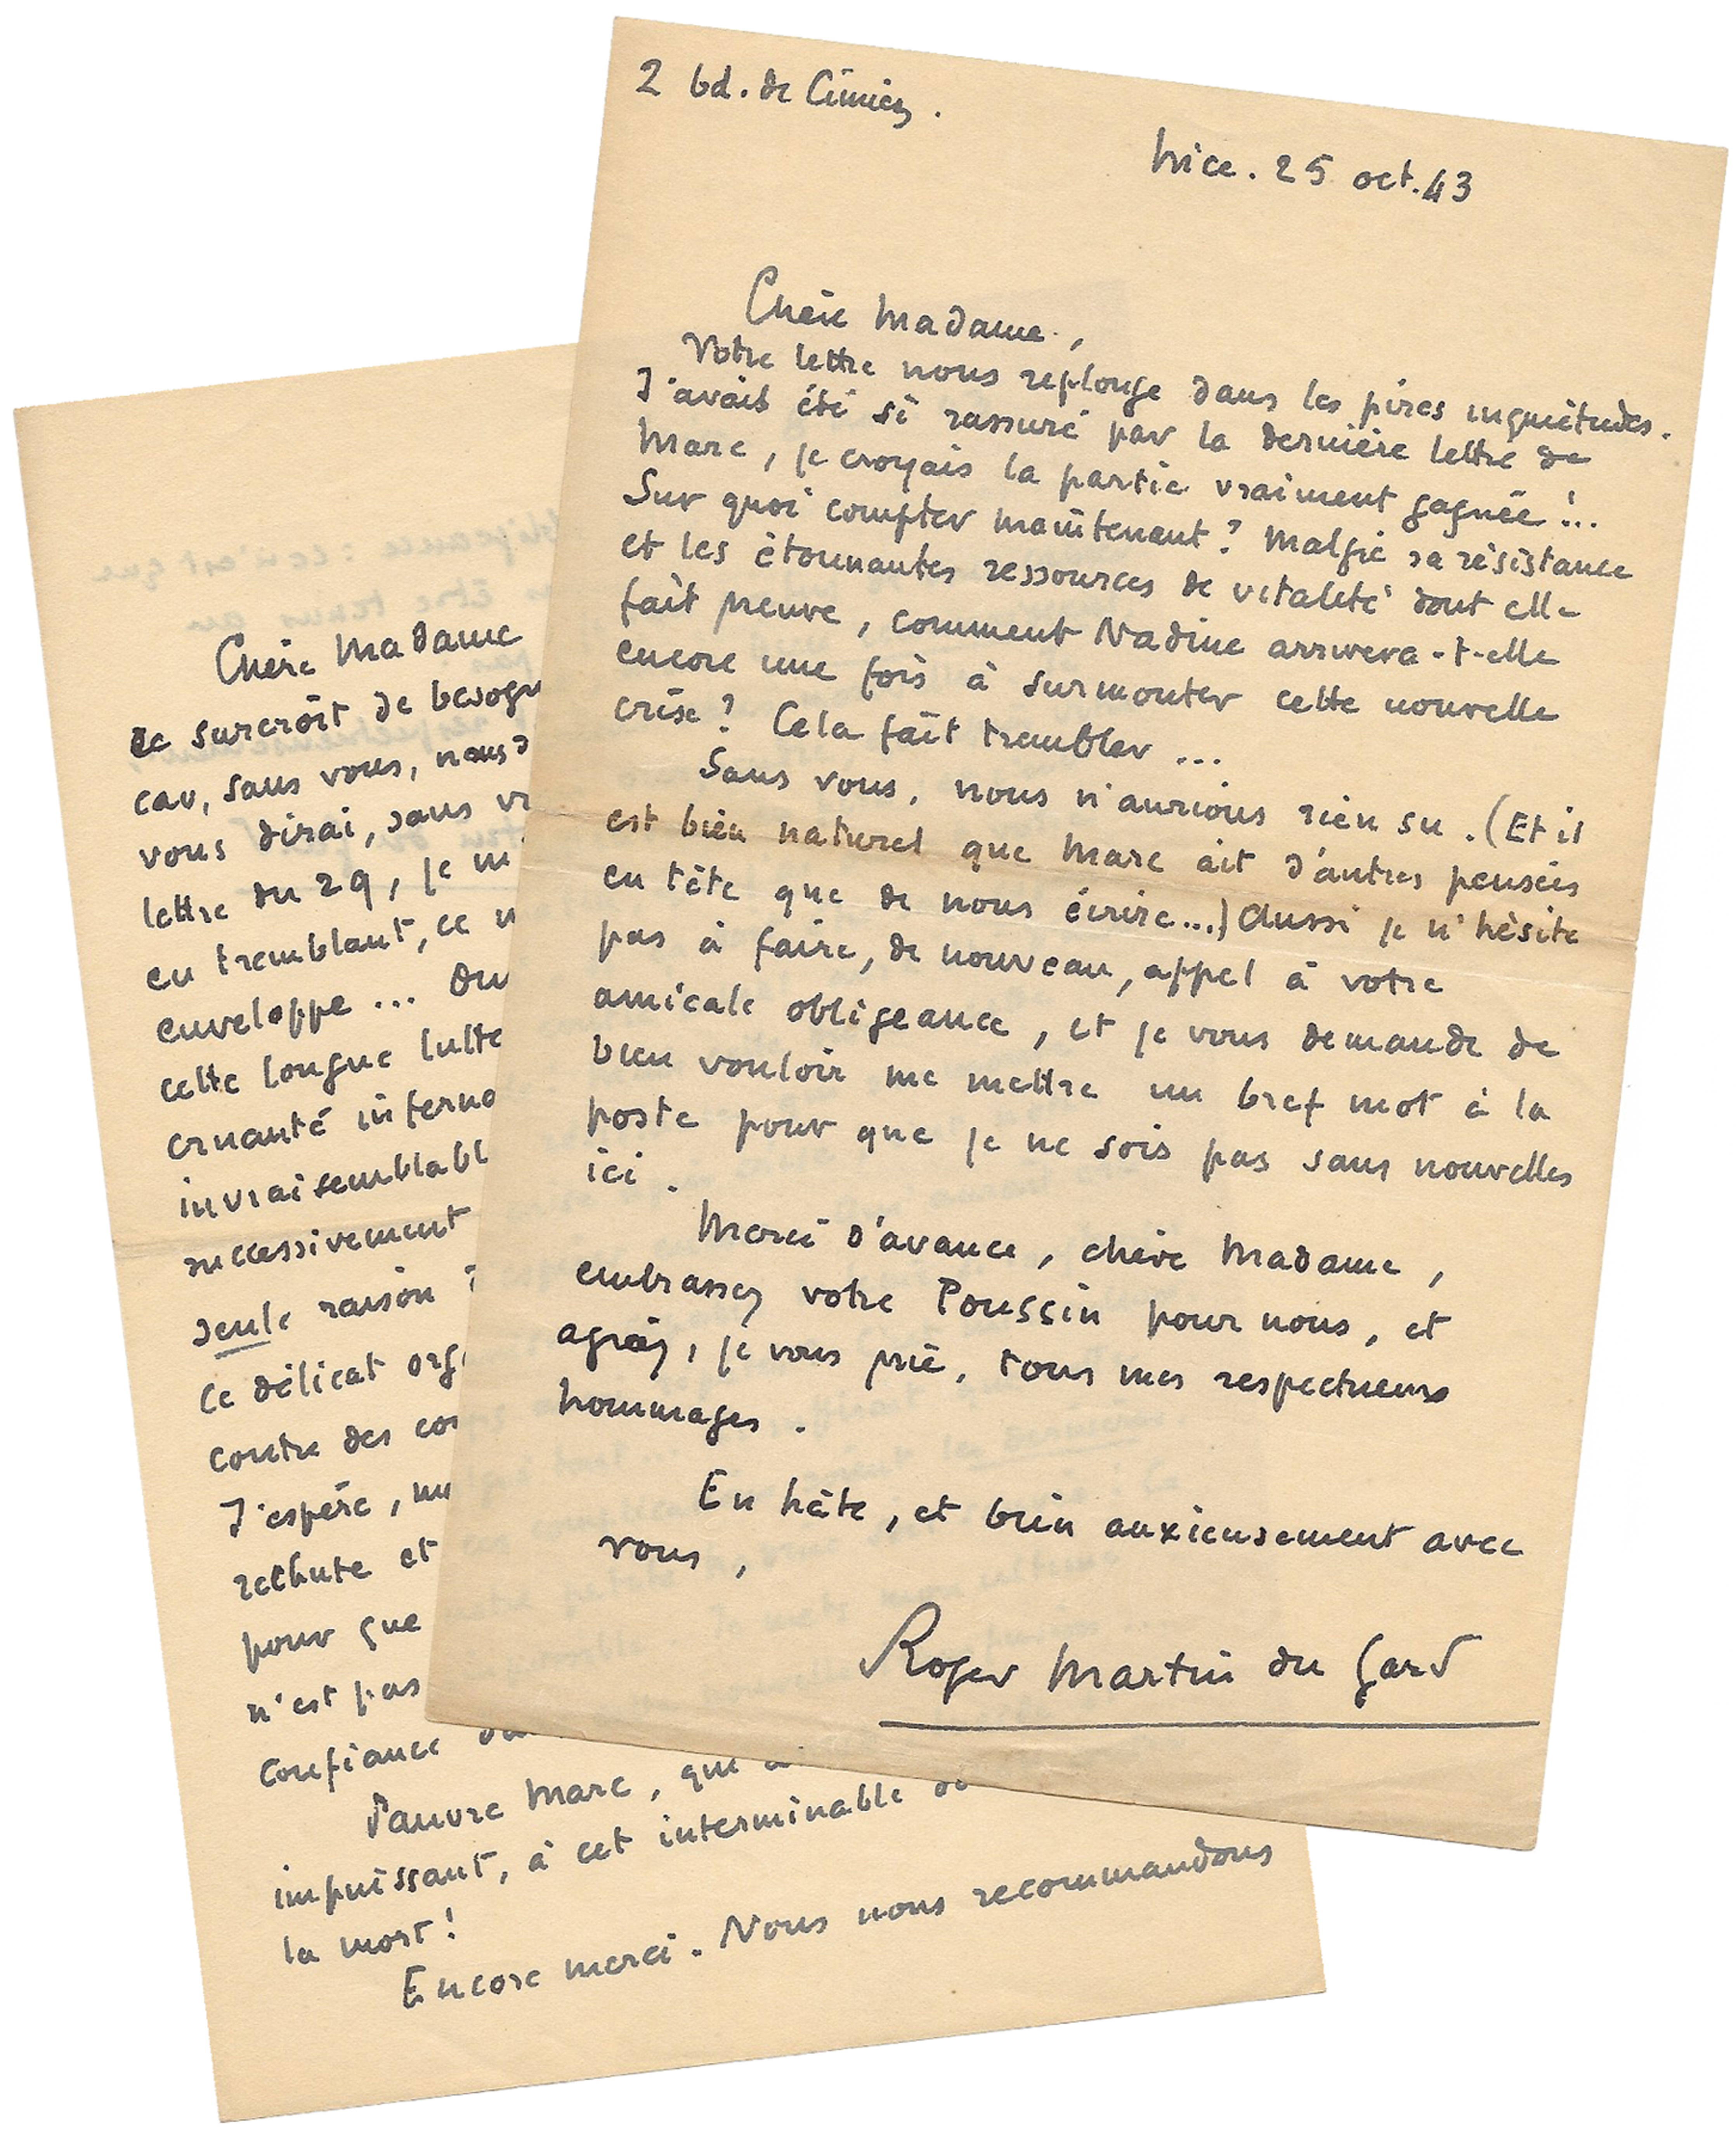 2 bd. de Cimiez.
Nice. 25 oct. 43
Chère Madame,
Votre lettre nous replonge dans les pires inquiétudes.
J'avais été si rassuré par la dernière lettre de
Marc, je croyais la partie vraiment gagnée !..
Sur quoi compter maintenant ? Malgré sa résistance
et les étonnantes ressources de vitalité dont elle
fait preuve, comment Nadine arrivera-t-elle
encore une fois à surmonter cette nouvelle
crise ? Cela fait trembler ...
Sans vous, nous n'aurions rien su. (Et il
est bien naturel que Marc ait d'autres pensées
en tête que de nous écrire...) Aussi je n'hésite
pas à faire, de nouveau, appel à votre
amicale obligeance, et je vous demande de
bien vouloir me mettre un bref mot à la
poste pour que je ne sois pas sans nouvelles
ici.
Merci d'avance, chère Madame,
embrassez votre Poussin pour nous, et
agréez, je vous prie, tous mes respectueux
hommages.
En hâte, et bien anxieusement avec
vous,
Roger Martin du Gard
Chère Madame
ce surcroît de besogn
car, sans vous, nous
vous dirai, sans
lettre du 29, je m'
en tremblant, ce
enveloppe ...
cette longue lutte
cruauté inferna
invraisemblabl
successivement
seule raison
ce délicat org
contre des
J'espère,
rechute et
pour que
n'est pas
confiance
Pauvre Marc, que
impuissant, à cet interminable
la mort !
Encore merci. Nous nous recommandons